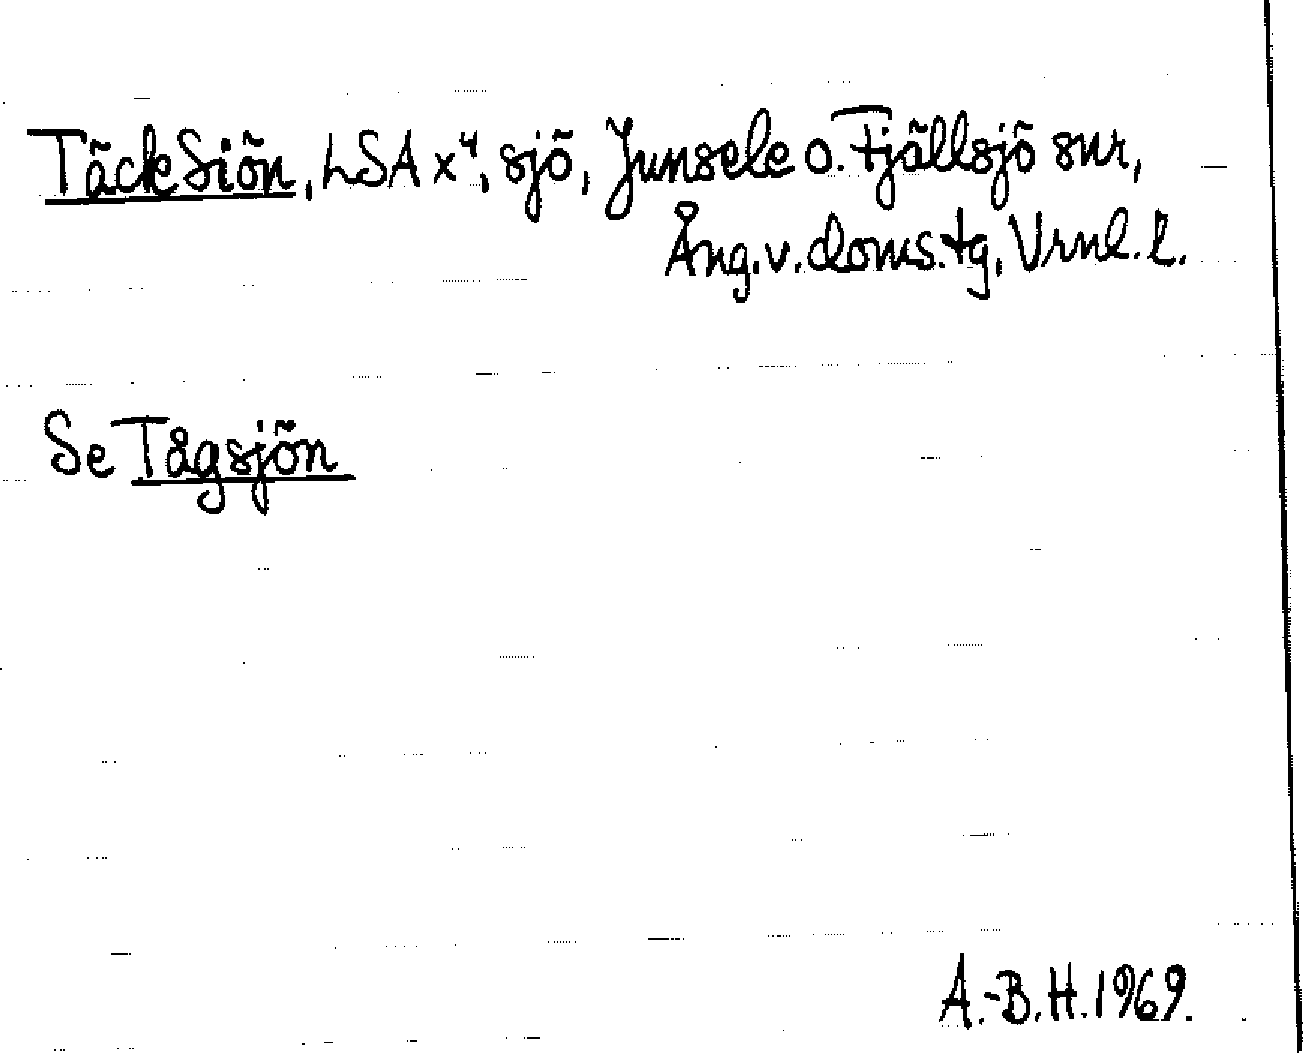 Täck Siön, LSA x⁴, sjö, Junsele o. Fjällsjö snr,
Ång. v. doms. tg, Vrnl. l.
Se Tågsjön
A.-B. H. 1969.